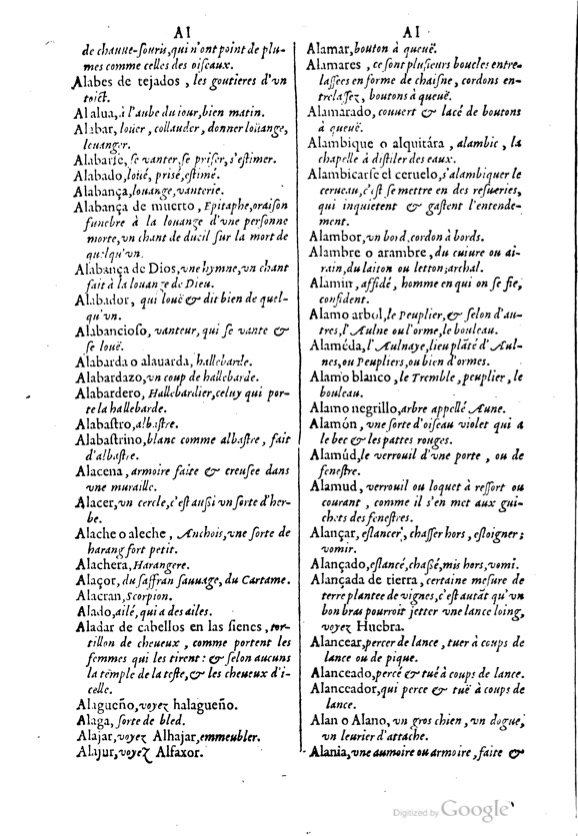 AI
de chauue-souris, qui n'ont point de plu-
mes comme celles des oiseaux.
Alabes de tejados, les goutieres d'vn
toict.
Al alua, à l'aube du iour, bien matin.
Alabar, loüer, collauder, donner loüange,
loüanger.
Alabarse, se vanter, se priser, s'estimer.
Alabado, loué, prisé, estimé.
Alabança, loüange, vanterie.
Alabança de muerto, Epitaphe, oraison
funebre à la louange d'vne personne
morte, vn chant de dueil sur la mort de
quelqu'vn.
Alabança de Dios, vne hymne, vn chant
fait à la loüange de Dieu.
Alabador, qui louë & dit bien de quel-
qu'vn.
Alabancioso, vanteur, qui se vante &
se louë.
Alabarda o alauarda, hallebarde.
Alabardazo, vn coup de hallebarde.
Alabardero, Hallebardier, celuy qui por-
te la hallebarde.
Alabastro, albastre.
Alabastrino, blanc comme albastre, fait
d'albastre.
Alacena, armoire faite & creusee dans
vne muraille.
Alacer, vn cercle, c'est aussi vn sorte d'her-
be.
Alache o aleche, Anchois, vne sorte de
harang fort petit.
Alachera, Harangere.
Alaçor, du saffran sauuage, du Cartame.
Alacran, Scorpion.
Alado, ailé, qui a des ailes.
Aladar de cabellos en las sienes, tor-
tillon de cheueux, comme portent les
femmes qui les tirent: & selon aucuns
la temple de la teste, & les cheueux d'i-
celle.
Alagueño, voyez halagueño.
Alaga, sorte de bled.
Alajar, voyez Alhajar, emmeubler.
Alajur, voyez Alfaxor.
AI
Alamar, bouton à queuë.
Alamares, ce sont plusieurs boucles entre-
lassees en forme de chaisne, cordons en-
trelassez, boutons à queuë.
Alamarado, couuert & lacé de boutons
à queuë.
Alambique o alquitára, alambic, la
chapelle à distiler des eaux.
Alambicarse el ceruelo, s'alambiquer le
cerueau, c'est se mettre en des resueries,
qui inquietent & gastent l'entende-
ment.
Alambor, vn bord, cordon à bords.
Alambre o arambre, du cuiure ou ai-
rain, du laiton ou letton, archal.
Alamin, affidé, homme en qui on se fie,
confident.
Alamo arbol, le Peuplier, & selon d'au-
tres, l'Aulne ou l'orme, le bouleau.
Alaméda, l'Aulnaye, lieu plãté d'Aul-
nes, ou Peupliers, ou bien d'ormes.
Alamo blanco, le Tremble, peuplier, le
bouleau.
Alamo negrillo, arbre appellé Aune.
Alamón, vne sorte d'oiseau violet qui a
le bec & les pattes rouges.
Alamúd, le verrouil d'vne porte, ou de
fenestre.
Alamud, verrouil ou loquet à ressort ou
courant, comme il s'en met aux gui-
chets des fenestres.
Alançar, eslancer, chasser hors, esloigner;
vomir.
Alançado, eslancé, chassé, mis hors, vomi.
Alançada de tierra, certaine mesure de
terre plantee de vignes, c'est autãt qu'vn
bon bras pourroit jetter vne lance loing,
voyez Huebra.
Alancear, percer de lance, tuer à coups de
lance ou de pique.
Alanceado, percé & tué à coups de lance.
Alanceador, qui perce & tuë à coups de
lance.
Alan o Alano, vn gros chien, vn dogue,
vn leurier d'attache.
Alania, vne aumoire ou armoire, faite &
Digitized by Google